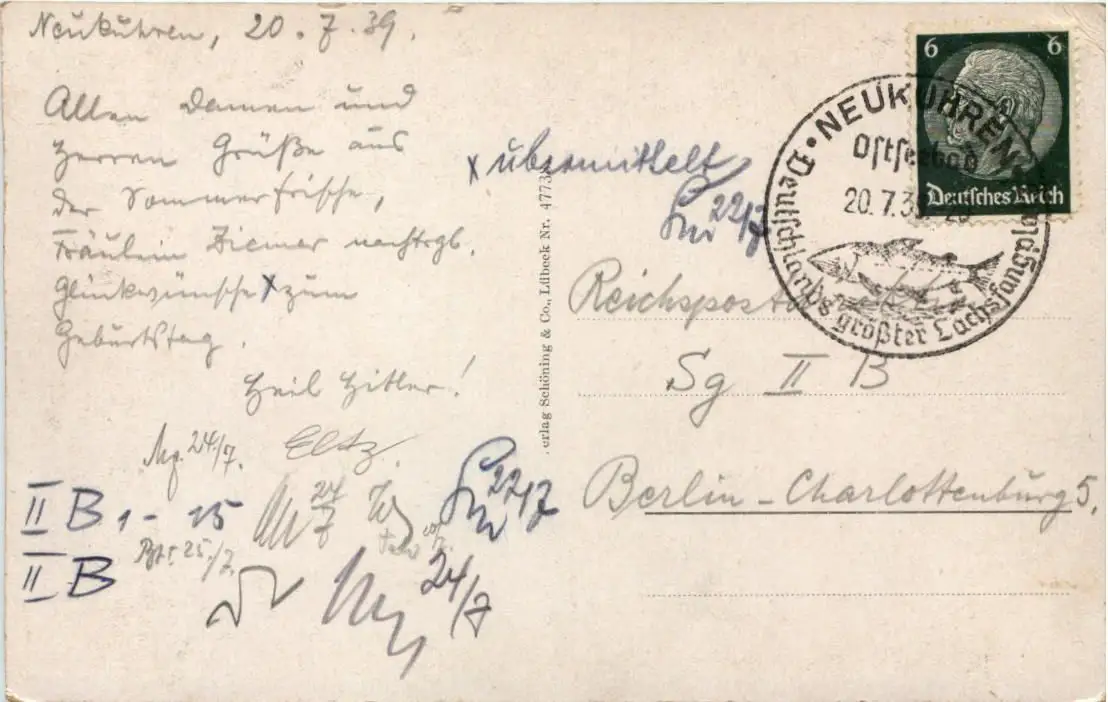 Neukuhren, 20.7.39.
Allen Damen und
Herren Grüße aus
der Sommerfrische,
Fräulein Ziemer nachtrgl.
Glückwünsche x zum
Geburtstag.
Heil Hitler!
Eltz.
24/7.
II B 1 - 15
24/7
22/7
25./7.
II B
24/7
x übermittelt
22/7
erlag Schöning & Co., Lübeck Nr. 4773
6 6
Deutsches Reich
NEUKUHREN
Ostseebad
20.7.39
Deutschlands größter Lachsfang
Reichspost
Sg II B
Berlin - Charlottenburg 5.